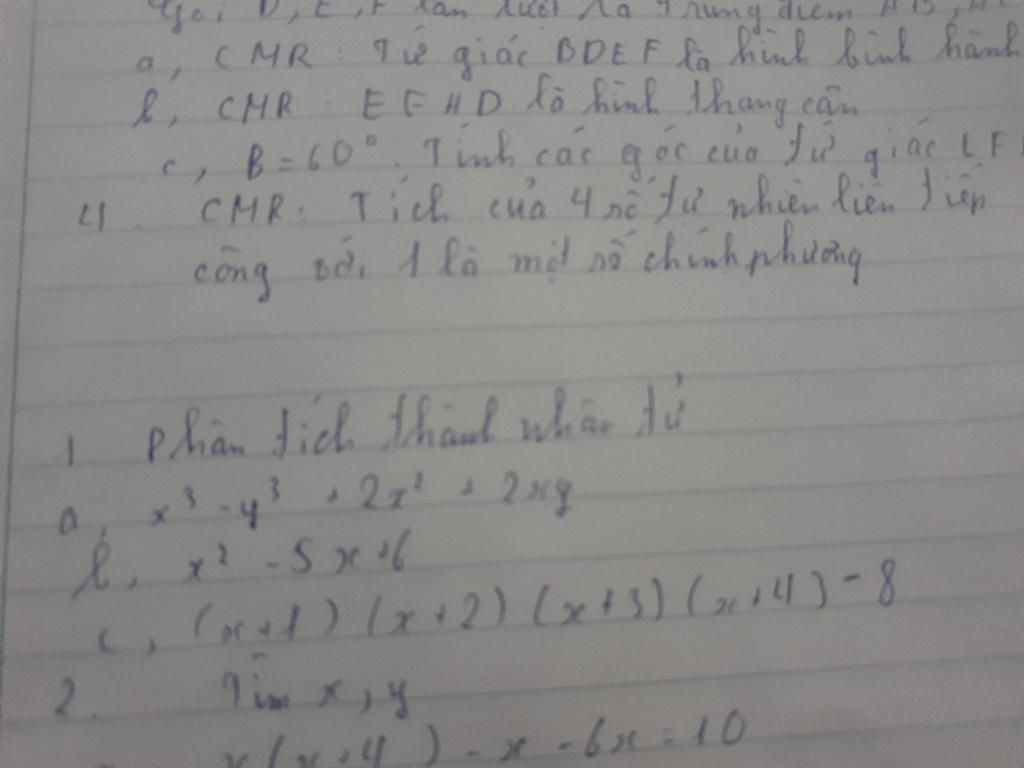 Gọi D, E, F lần lượt là trung điểm AB,
a, CMR: Tứ giác BDEF là hình bình hành
b, CMR: EFHD là hình thang cân
c, B = 60°. Tính các góc của tứ giác EF
4. CMR: Tích của 4 số tự nhiên liên tiếp
cộng với 1 là một số chính phương
1 Phân tích thành nhân tử
a, x³ - y³ + 2x² + 2xy
b, x² - 5x + 6
c, (x+1)(x+2)(x+3)(x+4) - 8
2. Tìm x, y
x(x+4) - x - 6x = 10